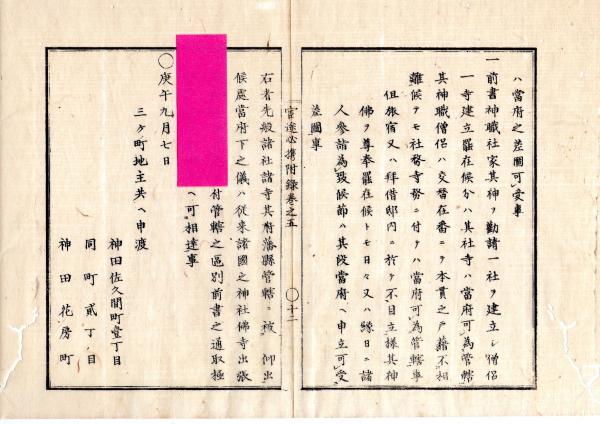 ハ當府之差圖可受事
一前書神職社家其神ヲ勸請一社ヲ建立シ僧侶
一寺建立罷在候分ハ其社寺ハ當府可為管轄
其神職僧侶ハ交替在番ニヲ本貫之戸籍不相
離候ヲモ社務寺務ニ付テハ當府可為管轄事
但旅宿又ハ拜借邸内ニ於テ不目立樣其神
佛ヲ尊奉罷在候トモ日々又ハ縁日ニ諸
人參詣為致候節ハ其段當府ヘ申立可受
差圖事
官途必携附録卷之五
〇十二
右者先般諸社諸寺其府藩縣管轄ニ被 仰出
候處當府下之儀ハ從来諸國之神社佛寺出張
付管轄之區別前書之通取極
ヘ可相達事
〇庚午九月七日
三ヶ町地主共ヘ申渡
神田佐久間町壹丁目
同町貳丁目
神田花房町